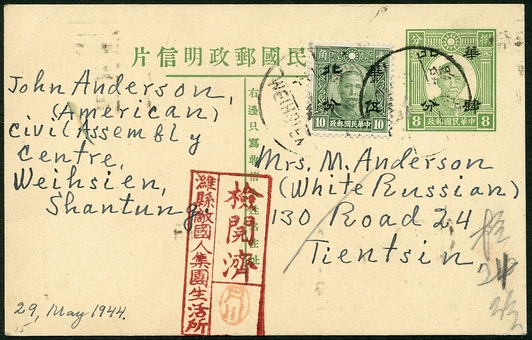 中華民國郵政明信片
John Anderson,
(American)
Civil Assembly
Centre,
Weihsien,
Shantung.
29, May 1944.
華北
伍分
10 中華民國郵政 10
華北
肆分
8 中華民國郵政 8
Mrs. M. Anderson
(White Russian)
130 Road 24
Tientsin,
檢閱濟
濰縣敵國人集團生活所